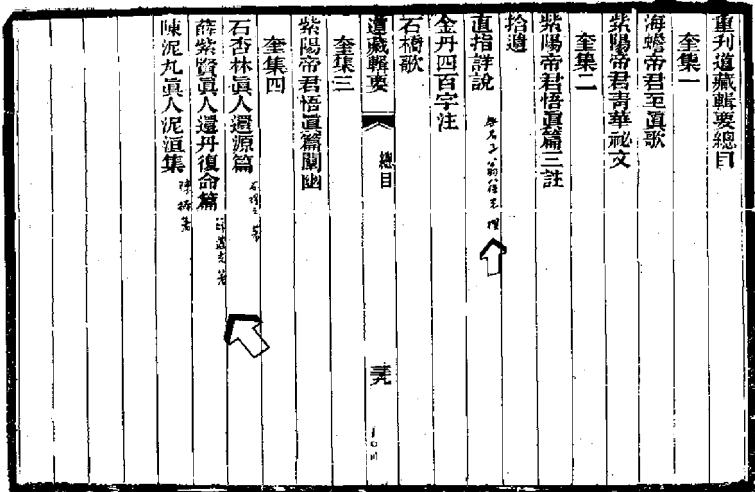 重刊道藏輯要總目
奎集一
海蟾帝君至真歌
紫陽帝君青華祕文
奎集二
紫陽帝君悟眞篇三註
拾遺
直指詳說
金丹四百字注
石橋歌
道藏輯要
總目
三九
奎集三
紫陽帝君悟眞篇闡幽
奎集四
石杏林眞人還源篇
薛紫賢眞人還丹復命篇
陳泥丸眞人泥洹集